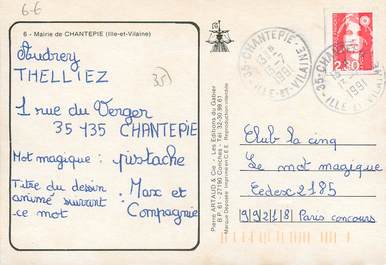 6-6
6 - Mairie de CHANTEPIE (Ille-et-Vilaine)
Audrey
THELLIEZ
35
1 rue du Verger
35135 CHANTEPIE
Mot magique : pistache
Titre du dessin : Marx et
animé suivant Compagnie
ce mot
Pierre ARTAUD & Cie - Les Editions du Gabier
B.P. 61 - 27190 Conches - Tél. 32-30
Marque Déposée Imprimé en C.E.E. Reproduction interdite
35-CHANTEPIE
1991
ILLE-ET-VILAINE
35-CHANTEPIE
1991
ILLE-ET-VILAINE
2,30
Club la cinq
Le mot magique
Cedex 2185
99218 Paris concours